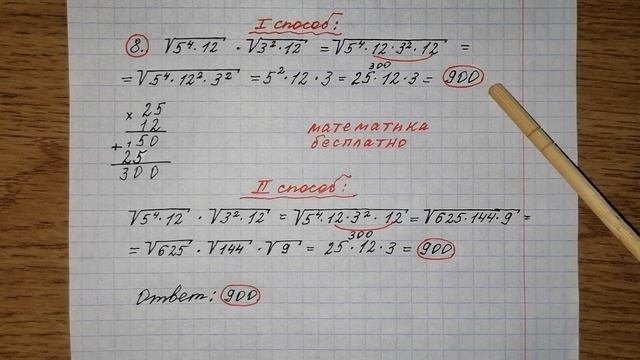 I способ:
8. √5⁴·12 · √3²·12 = √5⁴·12·3²·12 =
= √5⁴·12²·3² = 5²·12·3 = 25·12·3 = 900
300
× 25
12
+ 150
25
300
математика
бесплатно
II способ:
√5⁴·12 · √3²·12 = √5⁴·12·3²·12 = √625·144·9 =
= √625 · √144 · √9 = 25·12·3 = 900
300
Ответ: 900